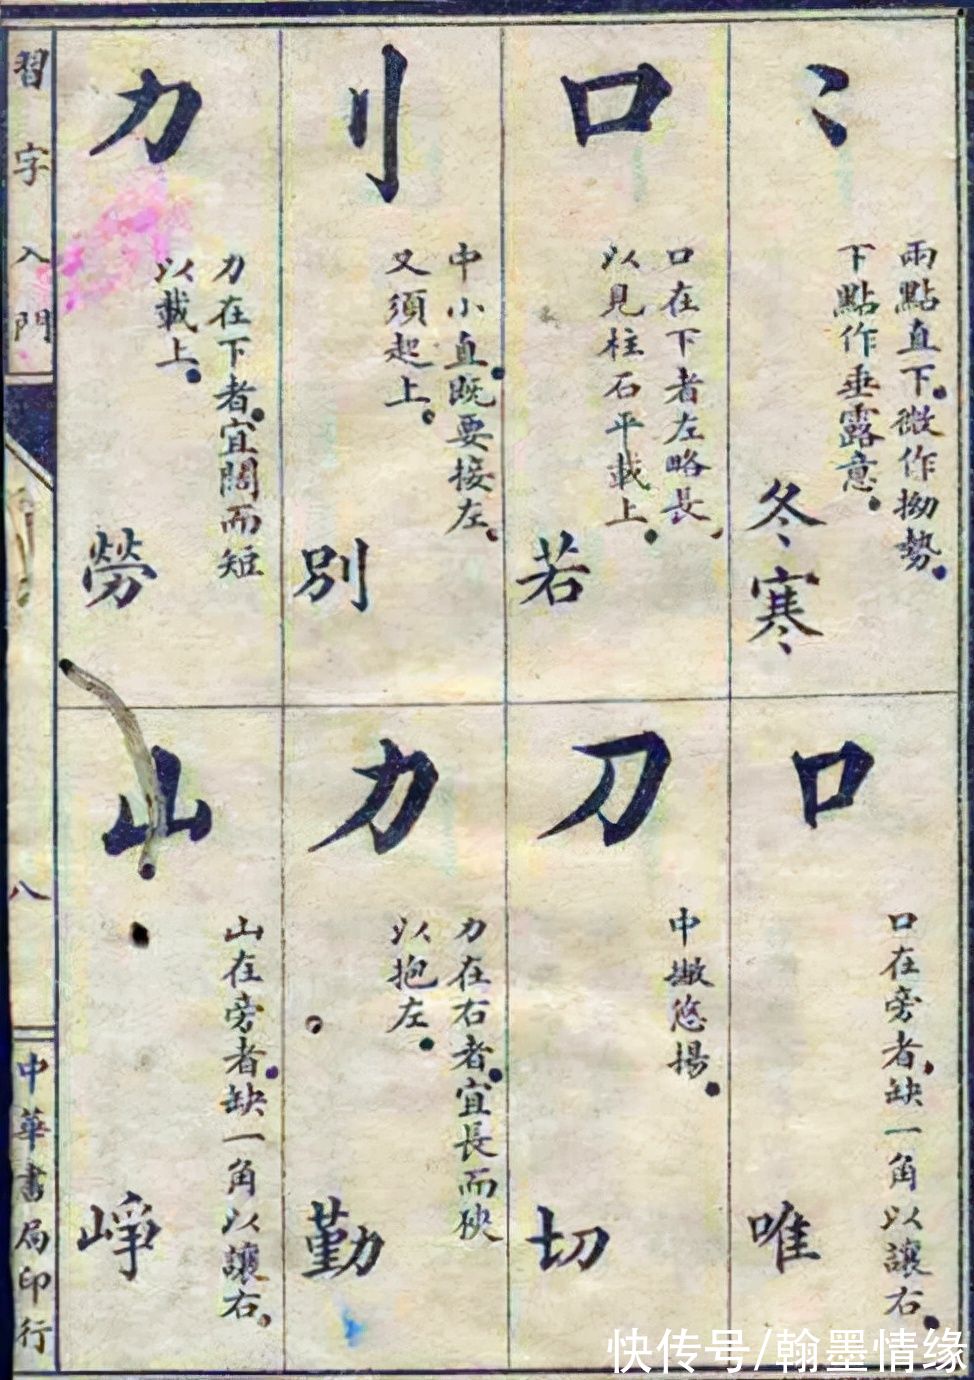 冫
兩點直下微作拗勢
下點作垂露意
冬寒
口
口在下者左略長
以見柱石平載上
若
刂
中小直既要接左
又須起上
別
力
力在下者宜闊而短
以載上
勞
口
口在旁者缺一角以讓右
唯
刀
中撇悠揚
切
力
力在右者宜長而狹
以抱左
勤
山
山在旁者缺一角以讓右
崢
習字入門
八
中華書局印行
快传号/翰墨情缘